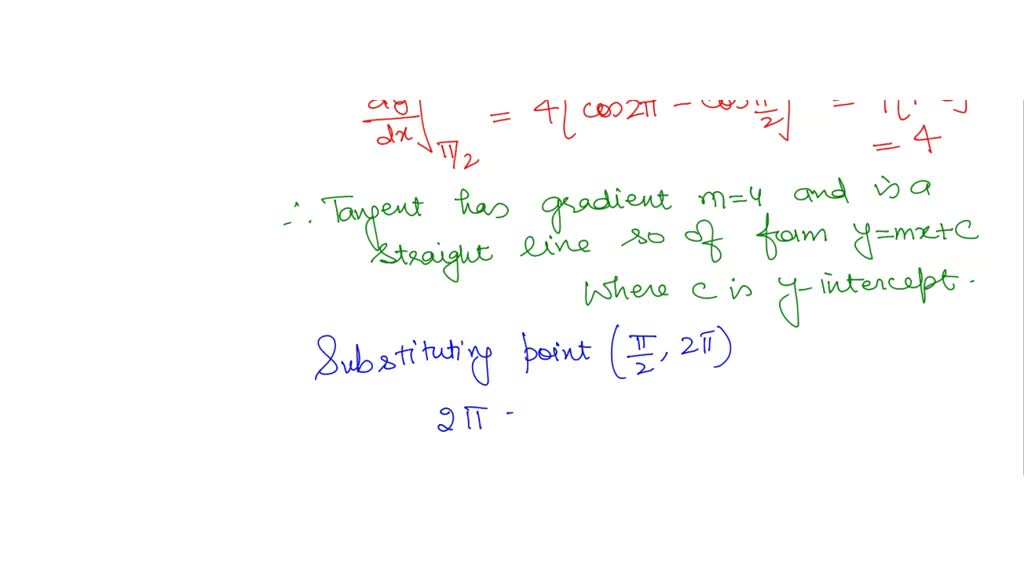 dy/dx|π/2 = 4[cos2π - cosπ/2] =
= 4
∴ Tangent has gradient m=4 and is a
straight line so of form y=mx+c
where c is y-intercept.
Substituting point (π/2, 2π)
2π -